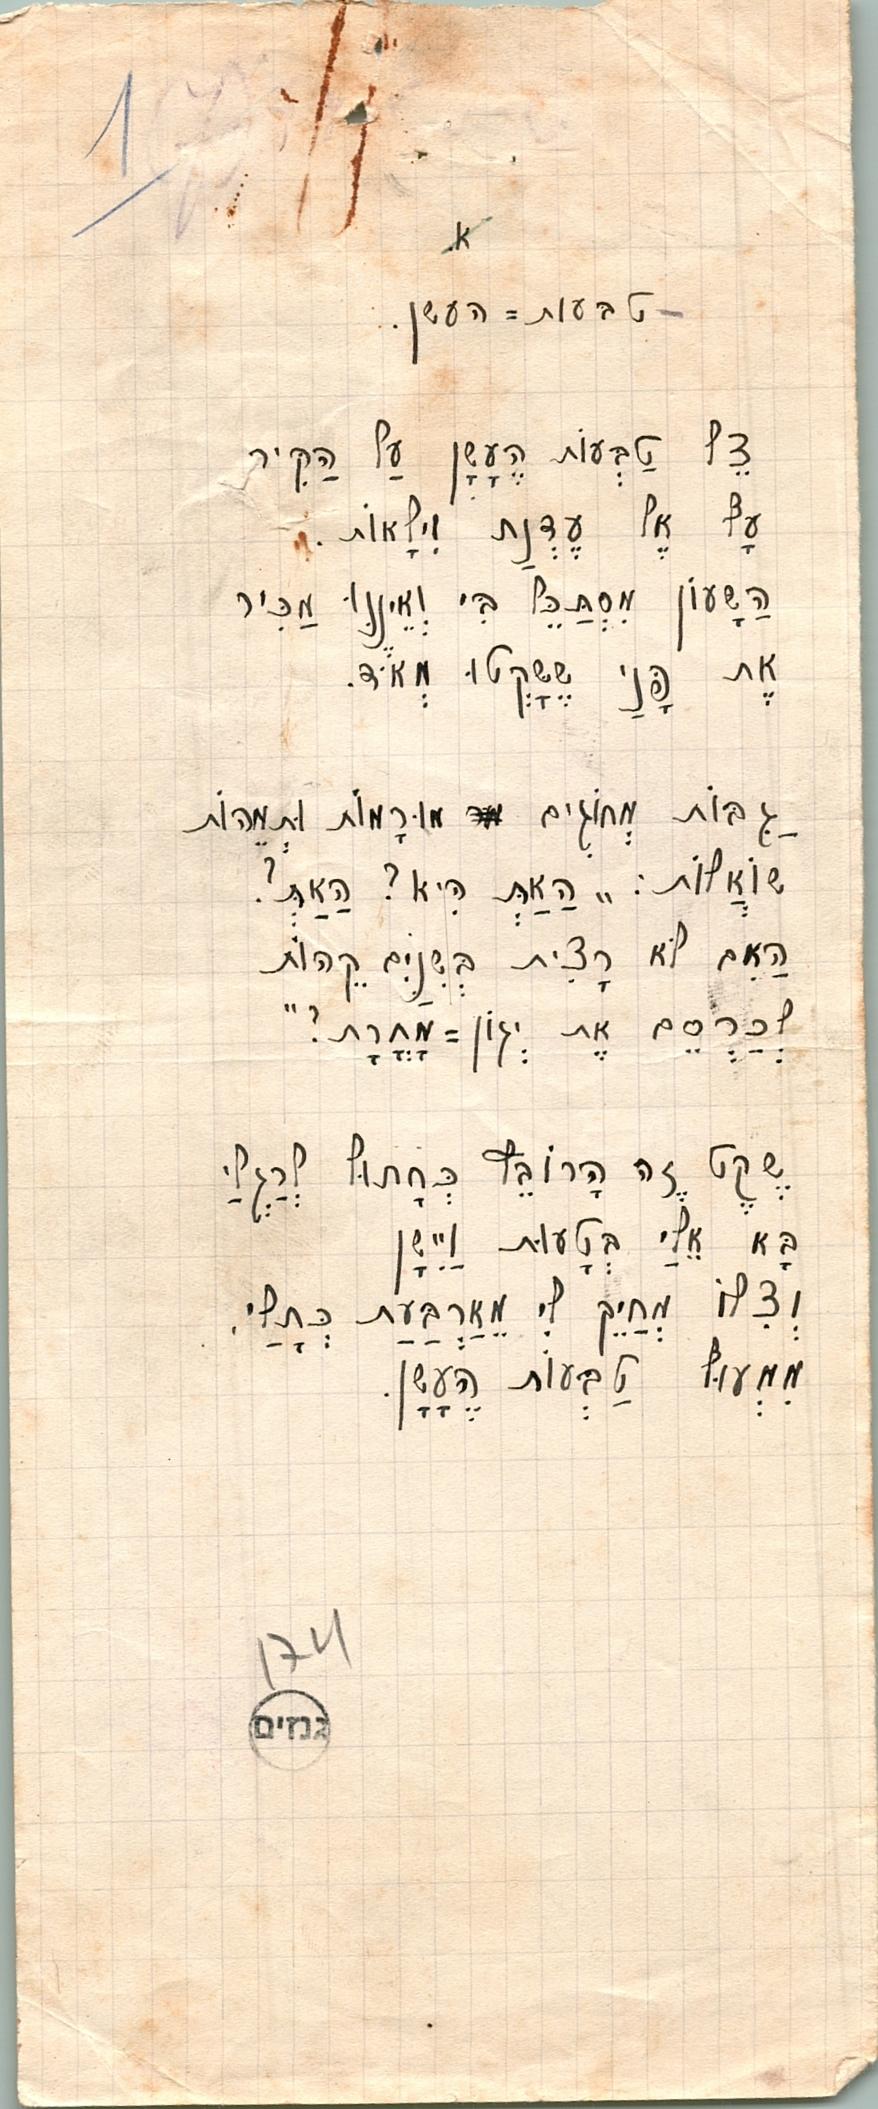 1
א.
טבעות=העשן.
צֵל טַבְּעוֹת הֶעָשָׁן עַל הַקִּיר
עָל אֶל עֶדְנַת וִילָאוֹת.
הַשָּׁעוֹן מִסְתַּכֵּל בִּי וְאֵינֶנּוּ מַכִּיר
אֶת פָּנַי שֶׁשָּׁקְטוּ מְאֹד.
גַבּוֹת מְחוֹגִים מוּרָמוֹת וּתְמֵהוֹת
שׁוֹאֲלוֹת: „הַאַתְּ הִיא? הַאַתְּ?.
הַאִם לֹא רָצִית בְּשִׁנַּיִם קֵהוֹת
לְכַרְסֵם אֶת יְגוֹן=מָחֳרָת?"
שֶׁקֶט זֶה הָרוֹבֵץ כְּחָתוּל לְרַגְלַי
בָּא אֵלַי בְּטָעוּת וַיִּישָׁן
וְצִלּוֹ מְחַיֵּךְ לִי מֵאַרְבַּעַת כְּתָלַי,
מִמְעוּל טַבְּעוֹת הֶעָשָׁן.
174
גנזים